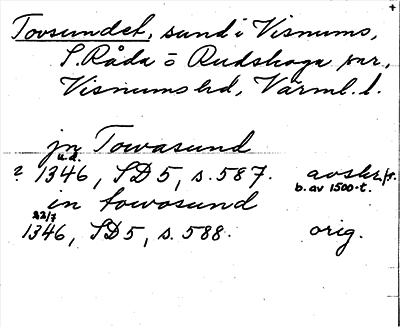 Tovsundet, sund i Visnums,
S. Råda o Rudskoga snr,
Visnums hd, Värml. l.
jn Towasund
u.d.
? 1346, SD 5, s. 587. avskr. fr.
b. av 1500-t.
in towosund
22/7
1346, SD 5, s. 588. orig.